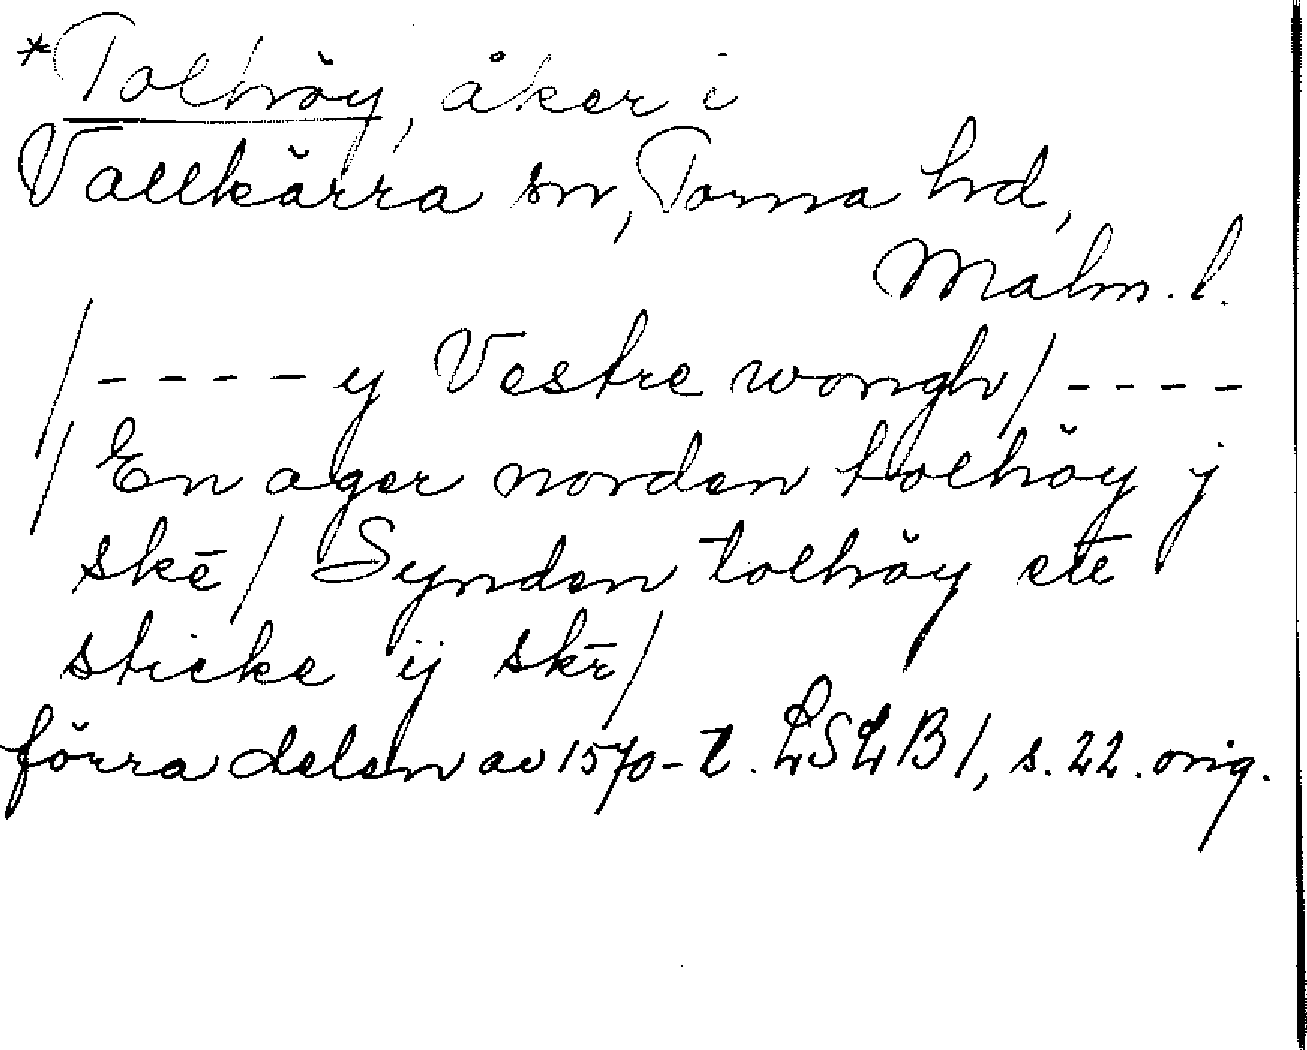 *Tolhöy, åker i
Vallkärra sn, Torna hd,
Malm. l.
/ - - - - y Vestre wongh / - - - -
/ En ager norden tolhöy j
skē / Synden tolhöy ett
sticke ij skē /
förra delen av 1570-t. LSLB 1, s. 22. orig.